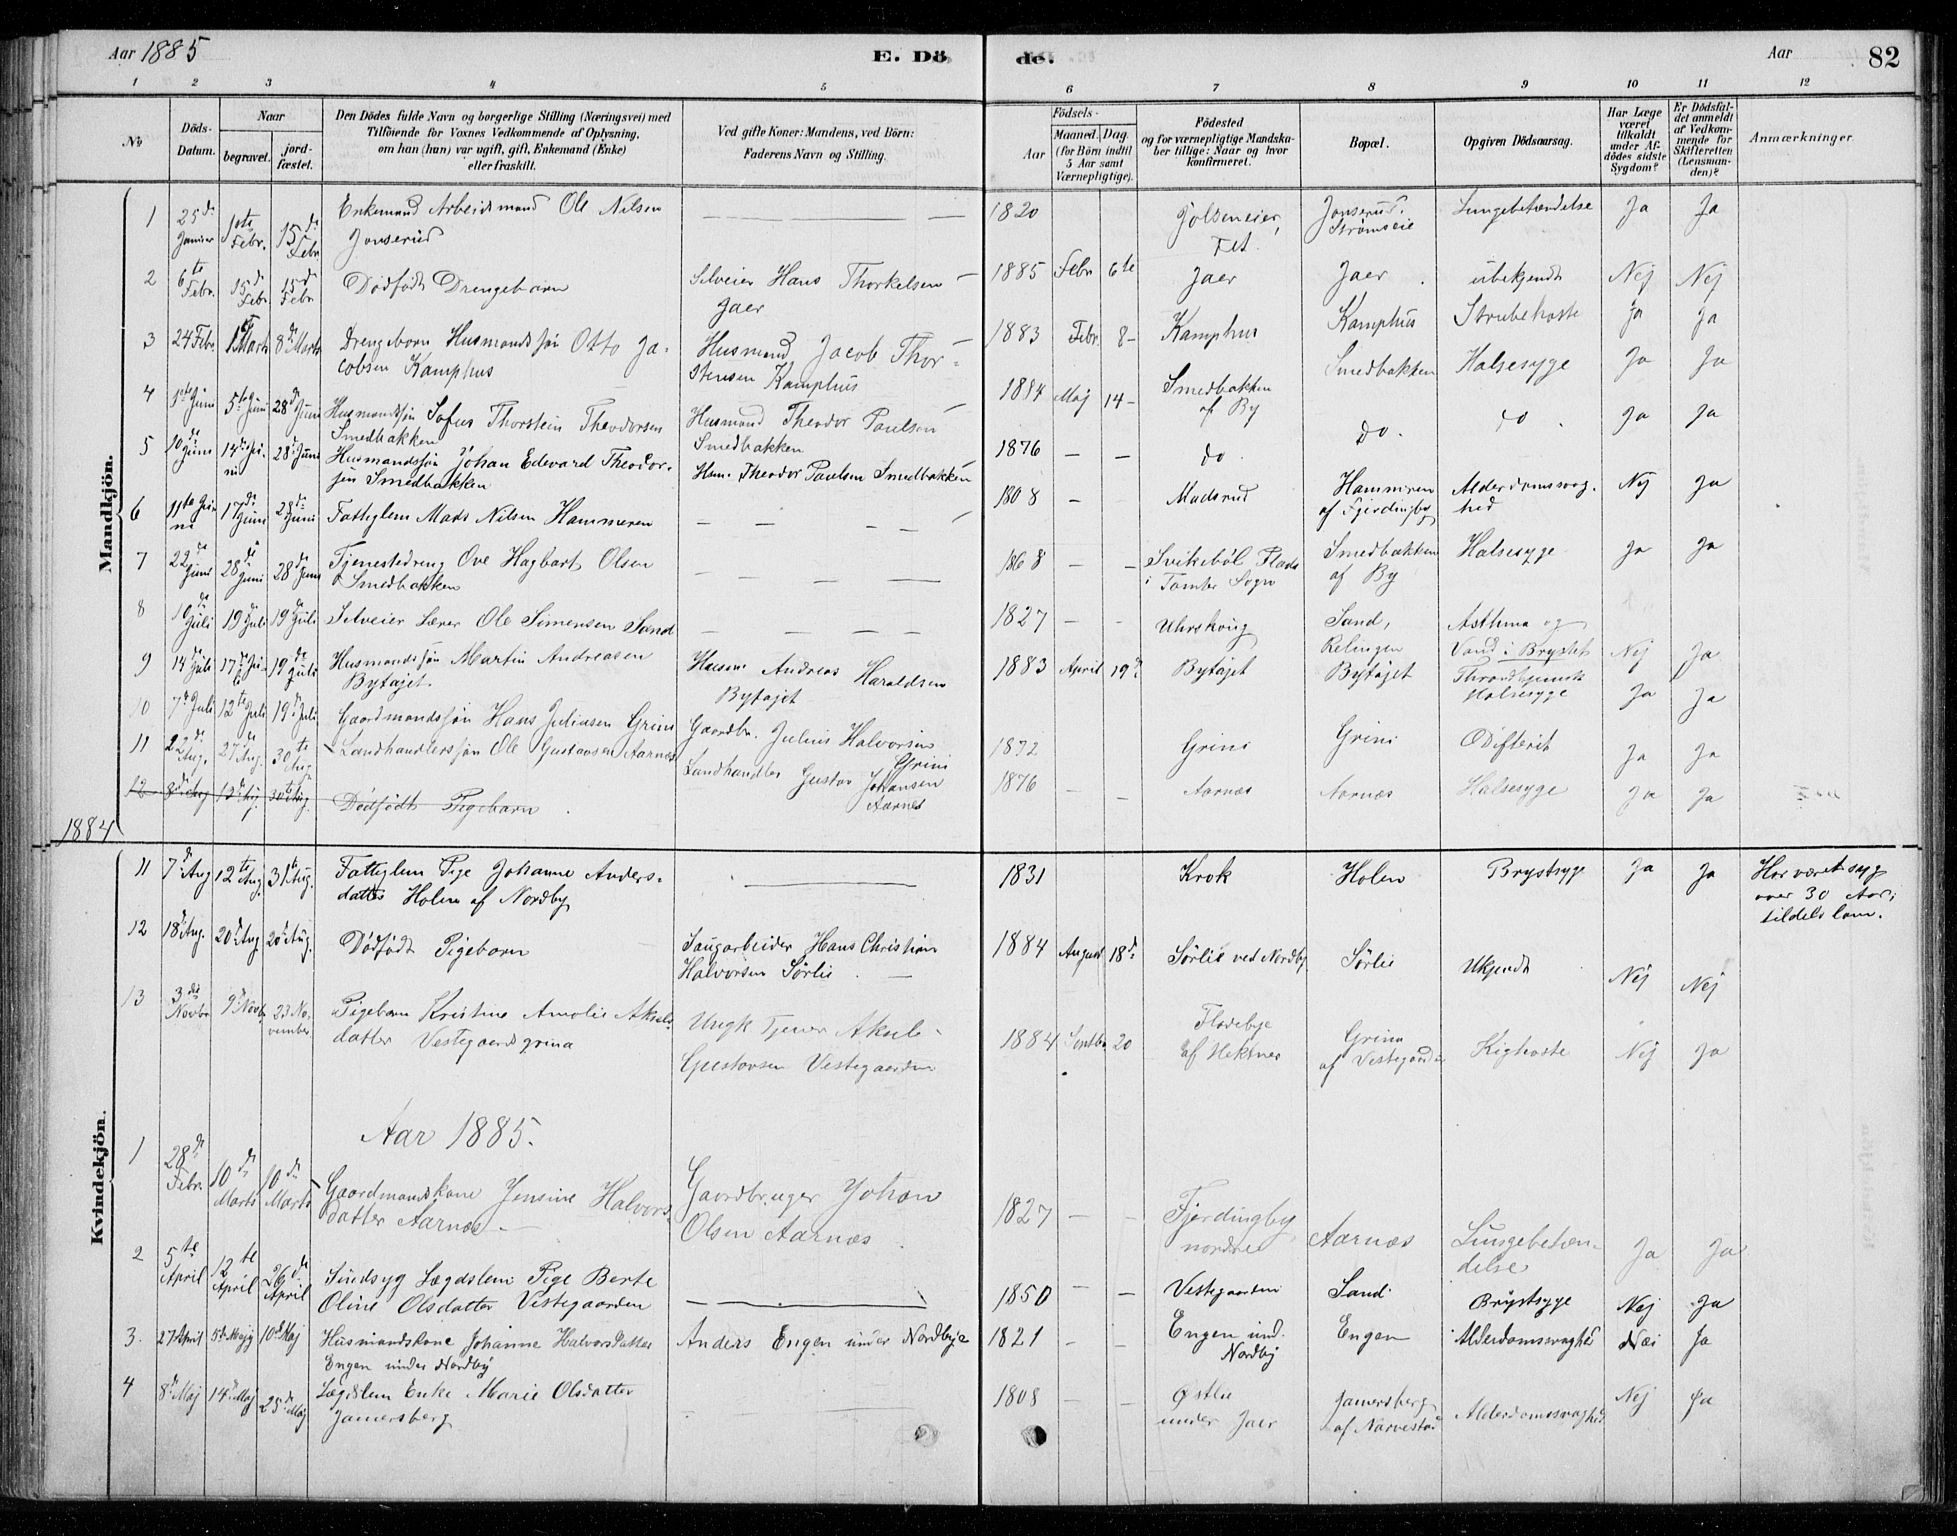 Aar 1885
E. Dö
de.
Aar
82
1 2 3 4 5 6 7 8 9 10 11 12
No
Döds-Datum.
Naar
begravet.
jord-fæstet.
Den Dödes fulde Navn og borgerlige Stilling (Næringsvei) med
Tilföiende for Voxnes Vedkommende af Oplysning,
om han (hun) var ugift, gift, Enkemand (Enke)
eller fraskilt.
Ved gifte Koner: Mandens, ved Börn:
Faderens Navn og Stilling.
Födsels-
Aar
Maaned. Dag.
(for Börn indtil
5 Aar samt
Værnepligtige).
Födested
og for værnepligtige Mandska-
ber tillige: Naar og hvor
konfirmeret.
Bopæl.
Opgiven Dödsaarsag.
Har Læge
været
tilkaldt
under Af-
dödes sidste
Sygdom?
Er Dödsfal-
det anmeldt
af Vedkom-
mende for
Skifteretten
(Lensman-
den)?
Anmærkninger.
Mandkjön.
1 25de Januar 1ste Febr. 15de Febr Enkemand Arbeidsmand Ole Nilsen — 1820 Fet. Jonserud, Strømseie Lungebetændelse Ja Ja
Jonserud
2 6te Febr. 15de Febr 15de Febr Dødfødt Drengebarn Selveier Hans Thorkelsen 1885 Febr 6te Jaer Jaer ubekjendt Nej Nej
Jaer
3 24 Febr. 1 Marts 8de Marts Drengebarn Husmandssøn Otto Ja- Husmand Jacob Thor- 1883 Febr. 8 Kamphus Kamphus Strubehoste Ja Ja
cobsen Kamphus stensen Kamphus
4 1ste Juni 5te Juni 28de Juni Husmandssøn Sofus Thorstein Theodorsen Husmand Theodor Paulsen 1884 Maj 14 Smedbakken af By Smedbakken Halsesyge Ja Ja
Smedbakken Smedbakken
5 10de Juni 14de Juni 28de Juni Husmandssøn Johan Edevard Theodor- Hsm. Theodor Paulsen Smedbakken 1876 — — do. do. do. Ja Ja
sen Smedbakken
6 11te Juni 17de Juni 28de Juni Fattiglem Mads Nilsen Hammeren — — — 1808 — Madsrud Hammeren af Fjerdingby Alderdomssvag-hed Nej Ja
7 22de Juni 28de Juni 28de Juni Tjenestedreng Ove Hagbart Olsen — — — 1868 — — Svikebøl Flade i Tomter Sogn Smedbakken af By Halsesyge Ja Ja
Smedbakken
8 10de Juli 19 Juli 19de Juli Selveier Lærer Ole Simensen Sand — — — 1827 — — Uhrskoug Sand, Relingen Asthma og Vand i Brystet Nej Ja
9 14de Juli 17de Juli 19de Juli Husmandssøn Martin Andreasen Husm. Andreas Haraldsen 1883 April 19de Bytøjet Bytøjet Throndhjemsk Halsesyge Ja Ja
Bytøjet. Bytøjet
10 7de Juli 12te Juli 19de Juli Gaardmandssøn Hans Juliusen Grini Gaardbr. Julius Halvorsen Grini 1872 Grini Grini Difterit Ja Ja
11 22de Aug. 27de Aug. 30te Aug. Landhandlerssøn Ole Gustavsen Aarnes Landhandler Gustav Johansen Aarnes 1876 — — Aarnæs Aarnæs Halsesyge Ja Ja
12 8de Aug 12de Aug. 30te Aug. Dødfødt Pigebarn
1884
Kvindekjön.
11 7de Aug 12te Aug. 31te Aug. Fattiglem Pige Johanne Anders- — 1831 Krok Holen Brystsyge Ja Ja Har været syg
datter Holen af Nordby over 30 Aar,
tildels lam.
12 18de Aug. 20de Aug 20de Aug. Dødfødt Pigebarn Saugarbeider Hans Christian 1884 August 18de Sørlie ved Nordby Sørlie Ukjendt Nej Nej
Halvorsen Sørlie
13 3die Novbr 9de Novbr 23 No-vember Pigebarn Kristine Amalie Aksels- Ungk Tjener Aksel 1884 Septbr 20 Flodebye af Heksnes Grina af Vestegaarden Kighoste Nej Ja
datter Vestegaardsgrina Gustavsen Vestegaarden
Aar 1885.
1 28de Febr. 10de Marts 10de Marts Gaardmandskone Jensine Halvors- Gaardbruger Johan 1827 — — Fjerdingby nordre Aarnæs Lungebetæn-delse Ja Ja
datter Aarnæs — Olsen Aarnæs
2 5te April 12te April 26de April Sindsyg Lægdslem Pige Berte — 1850 — — Vestegaarden Sand Brystsyge Nej Ja
Oline Olsdatter Vestegaarden
3. 27 April 5te Maj 10de Maj Husmandskone Johanne Halvorsdatter Anders Engen under Nordbye 1821 — — Engen und. Nordby Engen Alderdomssvaghed Nei Ja
Engen under Nordby
4 8de Maj 14de Maj 25de Maj Lægdslem Enke Marie Olsdatter 1808 — — Østlie under Jaer Jamersberg af Narvestad Alderdomssvaghed Nej Ja
Jamersberg